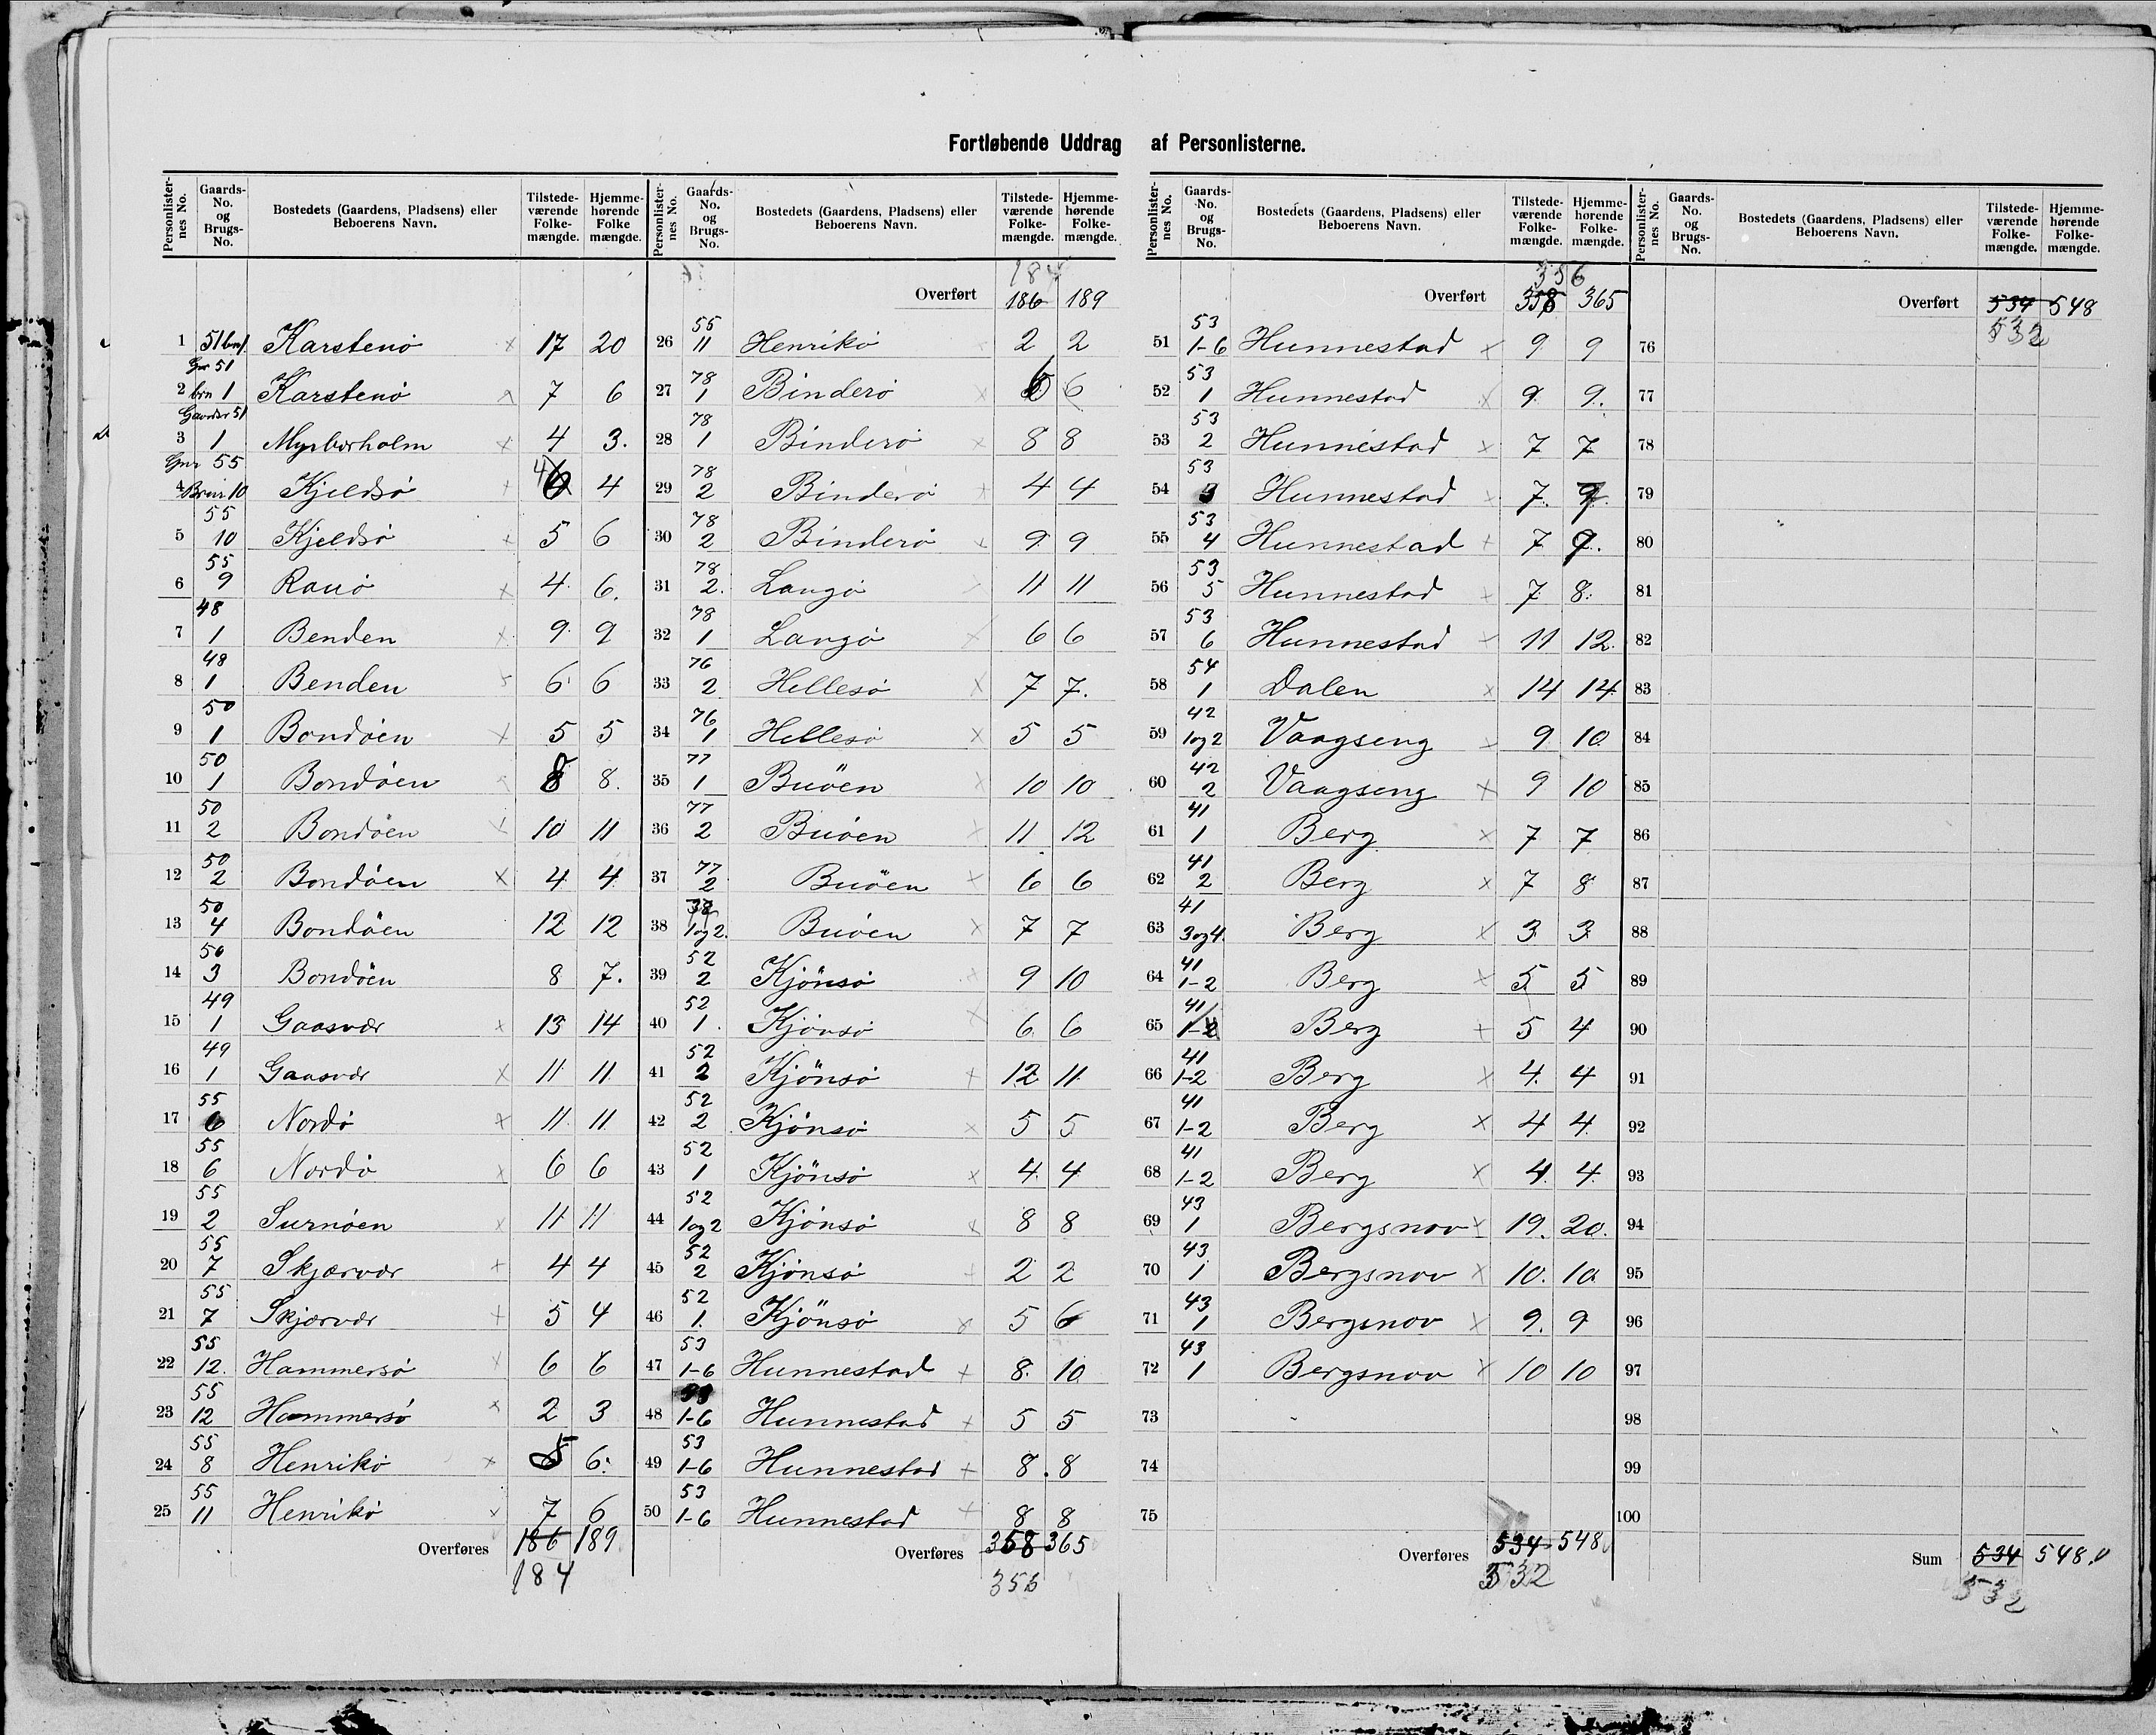 Fortløbende Uddrag af Personlisterne.
Personlisternes No. Gaards-No. og Brugs-No. Bostedets (Gaardens, Pladsens) eller Beboerens Navn. Tilstedeværende Folkemængde. Hjemmehørende Folkemængde.
1 51 bn 1 Karstenø x 17 20
2 Gnr 51 brn 1 Karstenø x 7 6
3 Gaardnr 51 1 Myrborholm x 4 3.
4 Gnr 55 Brnr 10 Kjeldsø 4 4
5 55 10 Kjeldsø x 5 6
6 55 9 Rauø x 4 6.
7 48 1 Benden x 9 9
8 48 1 Benden 6 6
9 50 1 Bondøen x 5 5
10 50 1 Bondøen 8 8.
11 50 2 Bondøen x 10 11
12 50 2 Bondøen x 4 4
13 50 4 Bondøen 12 12
14 50 3 Bondøen 8 7.
15 49 1 Gaasvær x 13 14
16 49 1 Gaasvær x 11 11
17 55 6 Nordø x 11 11
18 55 6 Nordø x 6 6
19 55 2 Surnøen x 11 11
20 55 7 Skjærvær x 4 4
21 55 7 Skjærvær x 5 4
22 55 12. Hammersø x 6 6
23 55 12 Hammersø x 2 3
24 55 8 Henrikø x 5 6.
25 55 11 Henrikø x 7 6
Overføres 186 189
184
184
Overført 186 189
26 55 11 Henrikø 2 2
27 78 1 Binderø x 6 6
28 78 1 Binderø x 8 8
29 78 2 Binderø x 4 4
30 78 2 Binderø x 9 9
31 78 2. Langø 11 11
32 78 1 Langø x 6 6
33 76 2 Hellesø x 7 7.
34 76 1 Hellesø x 5 5
35 77 1 Buøen x 10 10
36 77 2 Buøen x 11 12
37 77 2 Buøen x 6 6
38 1 og 2. Buøen x 7 7
39 52 2 Kjönsø x 9 10
40 52 1. Kjönsø x 6 6
41 52 2 Kjönsø x 12 11
42 52 2 Kjönsø x 5 5
43 52 1 Kjönsø x 4 4
44 52 1 og 2 Kjönsø x 8 8
45 52 2 Kjönsø 2 2
46 52 1. Kjönsø x 5 6
47 53 1-6 Hunnestad x 8. 10
48 53 1-6 Hunnestad x 5 5
49 53 1-6 Hunnestad x 8. 8
50 53 1-6 Hunnestad x 8 8
Overføres 358 365
356
356
Overført 358 365
51 53 1-6 Hunnestad x 9 9
52 53 1 Hunnestad x 9 9.
53 53 2 Hunnestad x 7 7
54 53 3 Hunnestad x 7.
55 53 4 Hunnestad x 7
56 53 5 Hunnestad x 7 8.
57 53 6 Hunnestad x 11 12.
58 54 1 Dalen x 14 14
59 42 1 og 2 Vaagseng x 9 10
60 42 2 Vaagseng x 9 10
61 41 1 Berg x 7 7
62 41 2 Berg x 7 8
63 41 3 og 4. Berg x 3 3
64 41 1-2 Berg x 5 5
65 41 Berg x 5 4
66 41 1-2 Berg x 4. 4
67 41 1-2 Berg x 4 4
68 41 1-2 Berg x 4 4.
69 43 1 Bergsnov x 19. 20.
70 43 1 Bergsnov x 10. 10.
71 43 1 Bergsnov x 9. 9
72 43 1 Bergsnov x 10 10
73
74
75
Overføres 534 548
532
Overført 534 548
532
76
77
78
79
80
81
82
83
84
85
86
87
88
89
90
91
92
93
94
95
96
97
98
99
100
Sum 534 548.
532